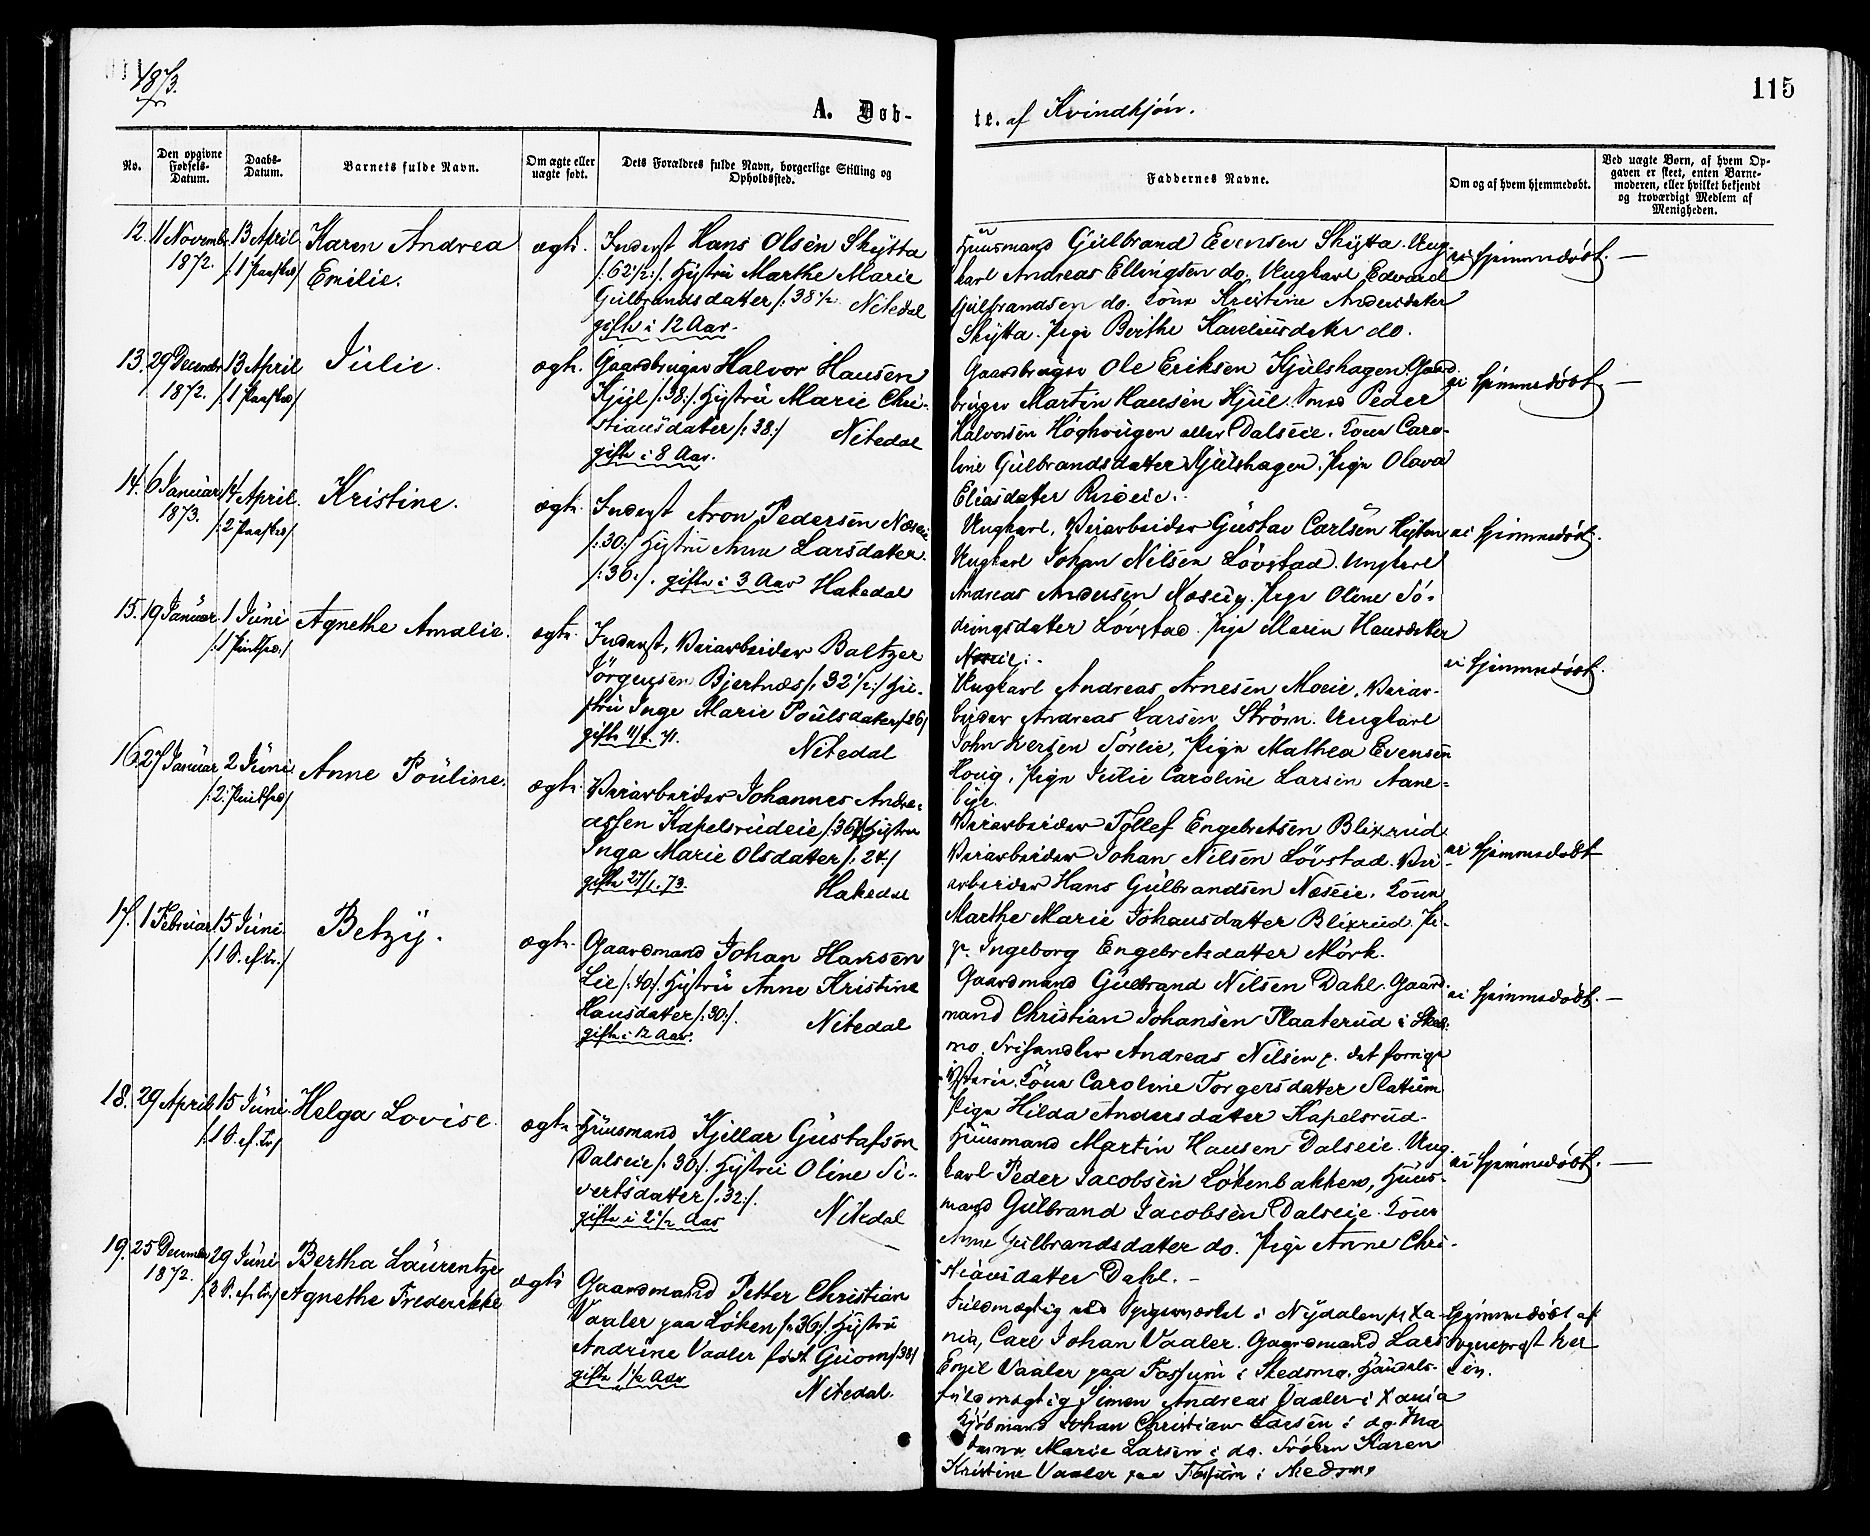 1873.
115
A. Døb-
te. af Kvindkjön.
No.
Den opgivne Fødsels-Datum.
Daabs-Datum.
Barnets fulde Navn.
Om ægte eller uægte født.
Dets Forældres fulde Navn, borgerlige Stilling og Opholdssted.
Faddernes Navne.
Om og af hvem hjemmedøbt.
Ved uægte Børn, af hvem Opgaven er skeet, enten Barnemoderen, eller hvilket bekjendt og troværdigt Medlem af Menigheden.
12. 11 Novemb. 13 April Karen Andrea ægte. Inderst Hans Olsen Skÿtta
1872. /:1 Paaskd/ Emilie. /:62 1/2:/. Hustru Marthe Marie
Gulbrandsdatter /:38 1/2 Nitedal
gifte i 12 Aar.
Huusmand Gulbrand Evensen Skÿtta. Ung-
karl Andreas Ellingsen do. Ungkarl Edvard
Gulbrandsen do. Kone Kristine Andersdatter
Skÿtta. Pige Berthe Kareliusdatter do.
ei hjemmedøbt. —
13. 29 December 13 April Julie. ægte. Gaardbruger Halvor Hansen
1872. /1 Paaskd/ Kjul /:38:/. Hustru Marie Chri-
stiansdatter /:38:/ Nitedal
gifte i 8 Aar.
Gaardbruger Ole Eriksen Kjulshagen. Gaard-
bruger Martin Hansen Kjul. Smed Peder
Halvorsen Høghougen eller Dalseie. Kone Caro-
line Gulbrandsdatter Kjulshagen. Pige Olava
Eliasdatter
ei hjemmedøbt. —
14. 6 Januar 14 April. Kristine. ægte. Inderst Aron Pedersen Næseie
1873. /:2 Paaskd/ /:30:/ Hustru Anne Larsdatter.
/:36:/. gifte i 3 Aar Hakedal
Ungkarl, Veiarbeider Gustav Carlsen
Ungkarl Johan Nilsen Løvstad. Ungkarl
Andreas Andersen Næseie. Pige Oline Sö-
dringsdatter Løvstad. Pige Maren Hansdatter
Næseie.
ei hjemmedøbt.
15. 19 Januar 1 Juni Agnethe Amalie. ægte. Inderst, Veiarbeider Baltzer
/:1 Pintsed:/ Jørgensen Bjertnæs /:32 1/2:/ Hu-
stru Inge Marie Poulsdatter /:26/
gifte Nitedal
Ungkarl Andreas Arnesen Moeie. Veiar-
beider Andreas Larsen Strøm. Ungkarl
John Iversen Sørlie, Pige Mathea Evensen
Houg, Pige Julie Caroline Larsen Aane-
bye.
ei hjemmedøbt.
16. 27 Januar 2 Juni Anne Pouline. ægte. Veiarbeider Johannes Andre-
/:2. Pintsed/ assen Kapelsrudeie /:36:/ Hustru
Inga Marie Olsdatter /:24:/
gifte 27/1. 73. Hakedal
Veiarbeider Tollef Engebretsen Blixrud.
Veiarbeider Johan Nilsen Løvstad. Vei-
arbeider Hans Gulbrandsen Næseie. Kone
Marthe Marie Johansdatter Blixrud. Pi-
ge. Ingeborg Engebretsdatter Mörk.
ei hjemmedøbt
17. 1 Februar 15 Juni Betzÿ. ægte. Gaardmand Johan Hansen
/1 S. ef. Tr./ Lie /:40:/. Hustru Anne Kristine
Hansdatter /:30:/. Nitedal
gifte i 12 Aar.
Gaardmand Gulbrand Nilsen Dahl. Gaard-
mand Christian Johansen Plaaterud i Skeds-
mo. Andreas Nilsen p. det forrige
Kone Caroline Torgersdatter Slattum
Pige Hilda Andersdatter Kapelsrud.
ei hjemmedøbt. —
18. 29 April 15 Juni Helga Lovise. ægte Huusmand Kjellar Gustafsøn
/:1 S. ef. Tr/ Dalseie /:30:/. Hustru Oline Si-
vertsdatter /:32:/. Nitedal
gifte i 2 1/2 Aar
Huusmand Martin Hansen Dalseie. Ung-
karl Peder Jacobsen Løkenbakken, Huus-
mand Gulbrand Jacobsen Dalseie. Kone
Anne Gulbrandsdatter do. Pige Anne Chri-
stiansdatter Dahl. —
ei hjemmedøbt. —
19. 25 Decembr 29 Juni Bertha Laurentze ægte Gaardmand Petter Christian
1872. /:3 S. ef. Tr/ Agnethe Frederikke Vaaler paa Løken /:36:/. Hustru
Andrine Vaaler født /:30/
gifte 1 1/2 Aar Nitedal.
Fuldmægtig ved Spigerværket i Nydalen pr Xa-
nia, Carl Johan Vaaler. Gaardmand Lars
Emil Vaaler paa Fossum i Skedsmo. Handels-
fuldmægtig Simen Andreas Vaaler i Xania
Kjøbmand Johan Christian Larsen i do. Ma-
dame Marie Larsen i do. Frøken Karen
Kristine Vaaler paa Fossum i Skedsmo
Hjemmedøbt af
Sogneprest Kel